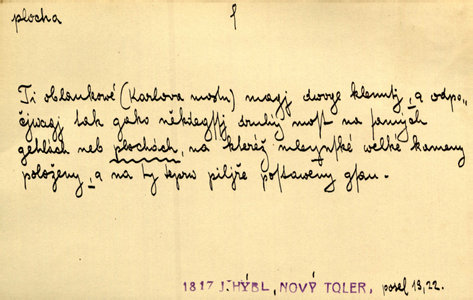 plocha f
Ti oblaukowé (Karlova mostu) magj dwoge klenutj, a odpo-
čjwagj tak gako někdegssj druhý most na pauhých
gehlách neb plochách, na kteréž mlegnské welké kameny
položeny, a na ty teprw piljře postaweny gsau.
1817 J. HÝBL, NOVÝ TOLER, posel 13, 22.